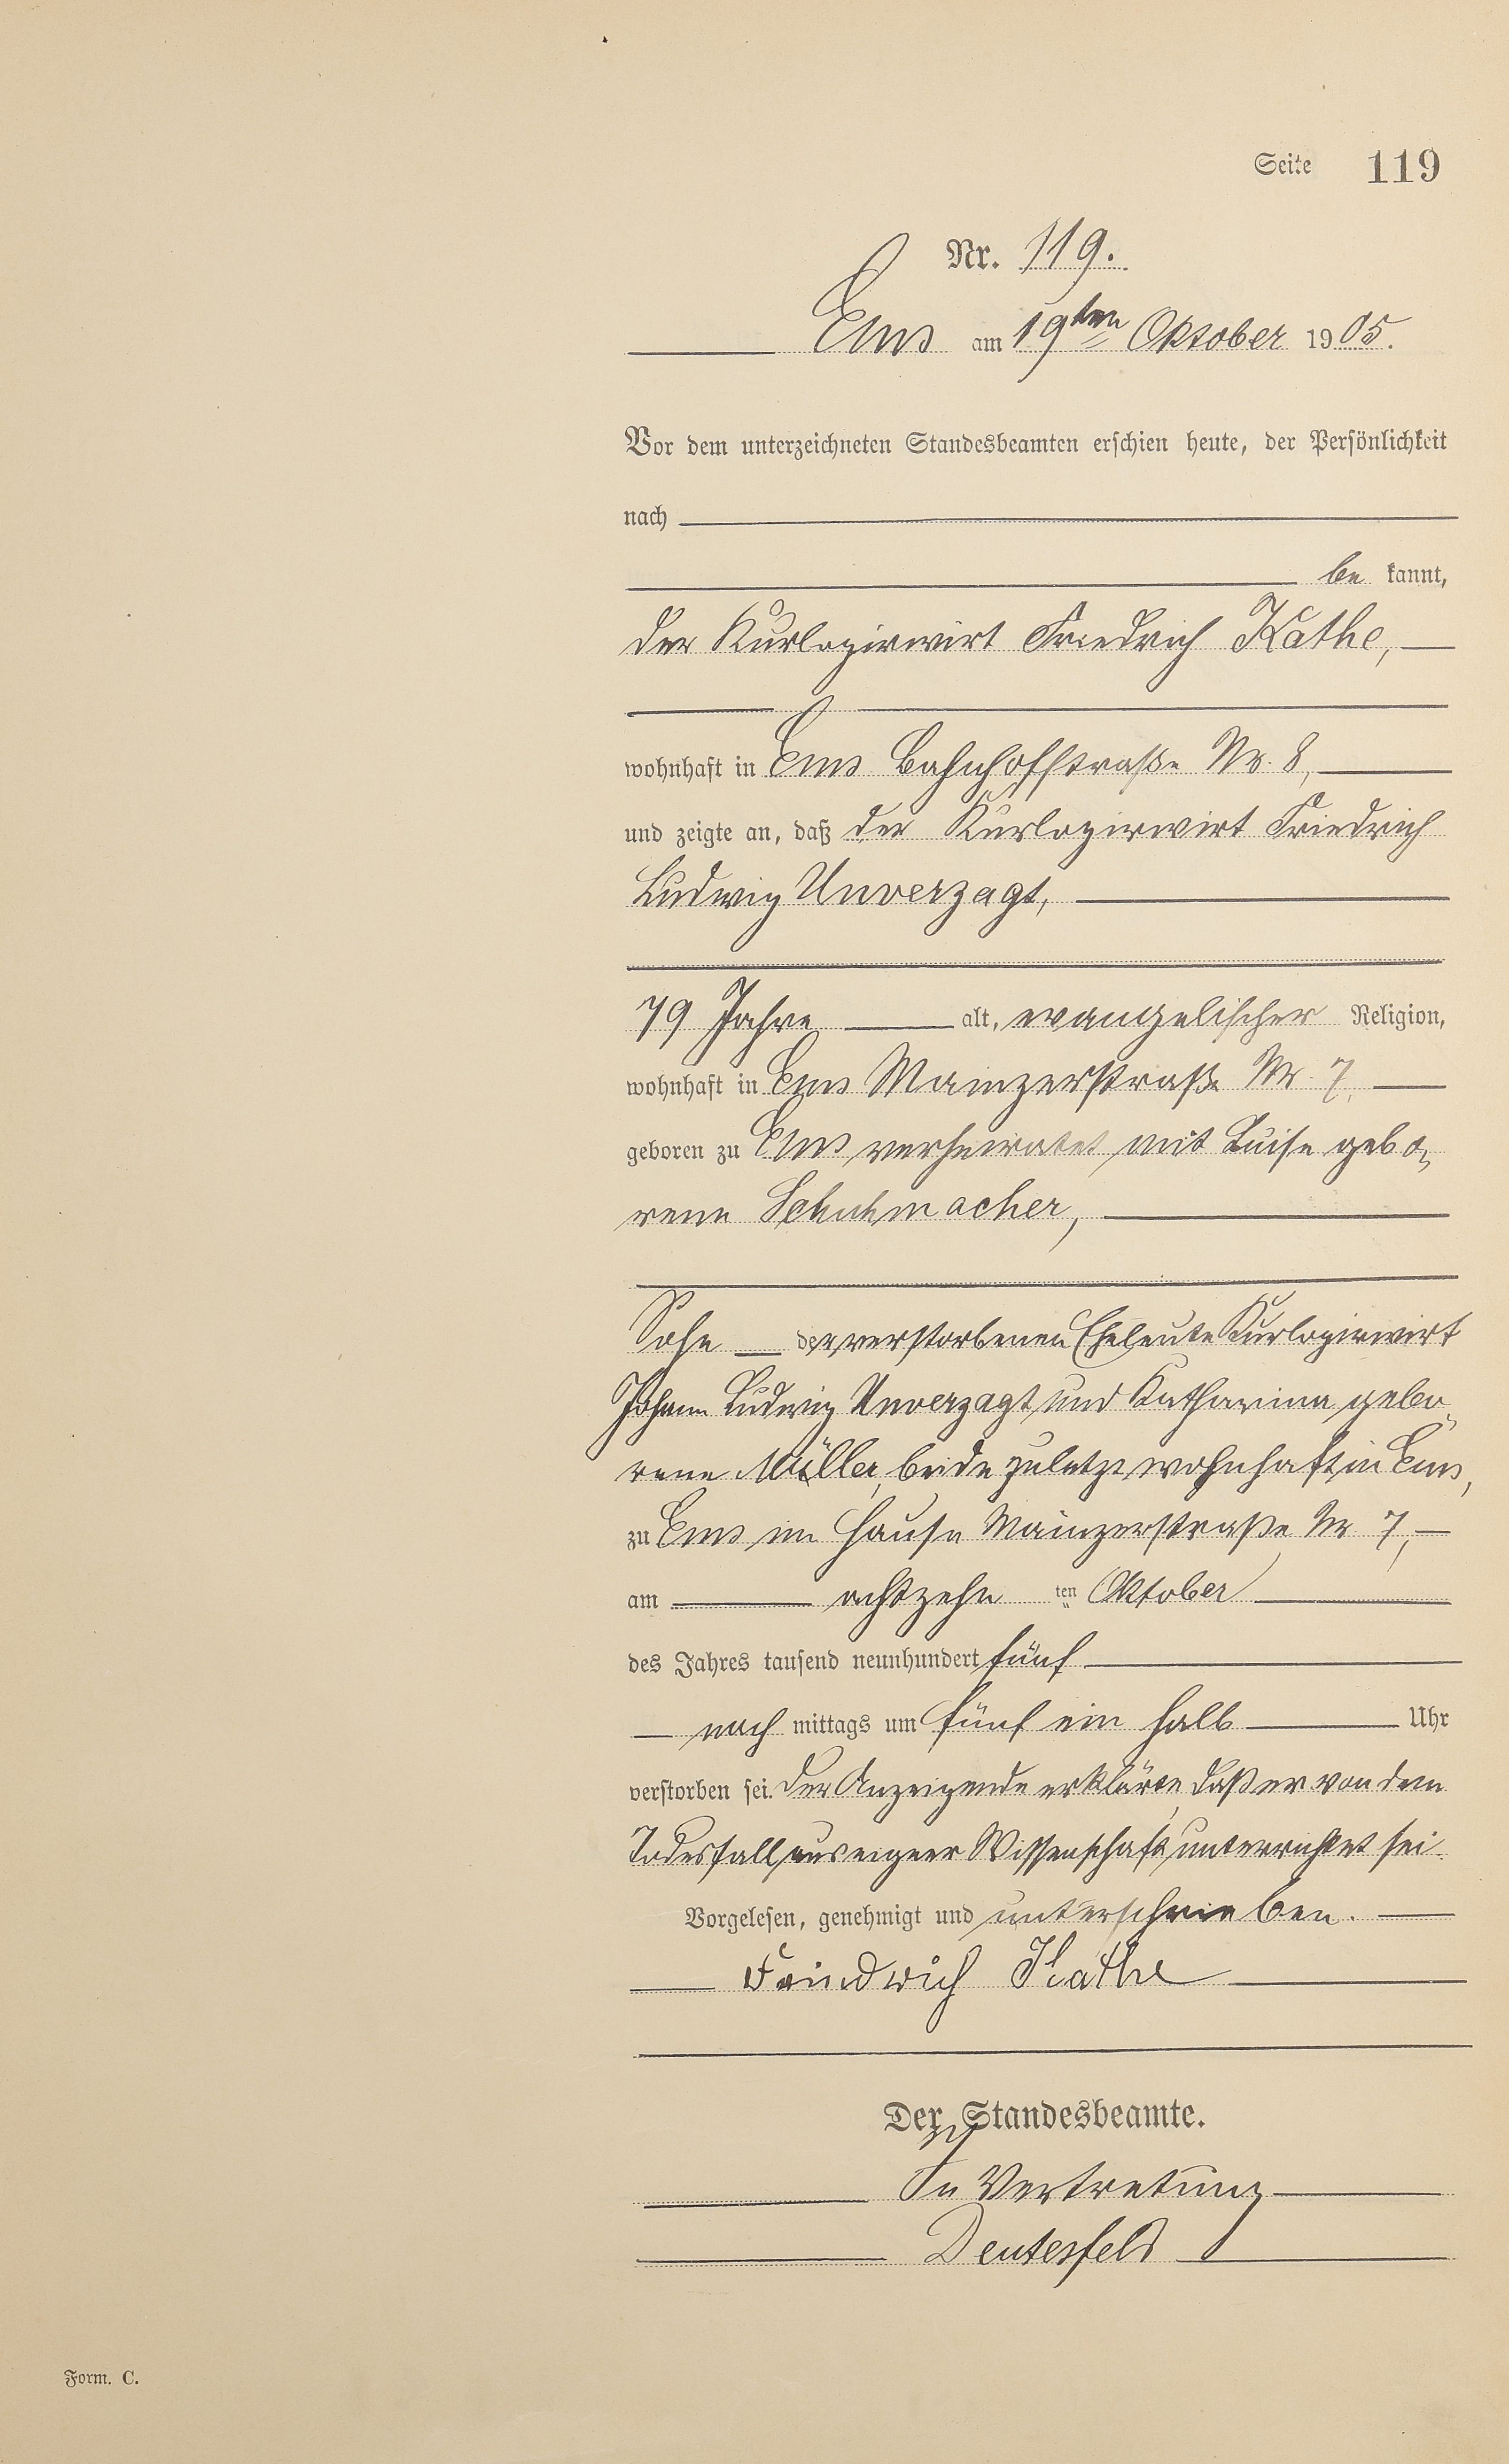 Seite 119
Nr. 119.
Ems am 19ten Oktober 1905.
Vor dem unterzeichneten Standesbeamten erschien heute, der Persönlichkeit
nach
be kannt,
der Kurlogirwirt Friedrich Kathe,
wohnhaft in Ems Bahnhofstraße Nr. 8,
und zeigte an, daß der Kurlogirwirt Friedrich
Ludwig Unverzagt,
79 Jahre alt, evangelischer Religion,
wohnhaft in Ems Mainzerstraße Nr. 7,
geboren zu Ems verheiratet mit Luise gebo-
rene Schuhmacher,
Sohn der verstorbenen Eheleute Kurlogirwirt
Johann Ludwig Unverzagt und Katharina gebo-
rene Müller, beide zuletzt wohnhaft in Ems,
zu Ems im Hause Mainzerstraße Nr 7,
am achtzehn ten Oktober
des Jahres tausend neunhundert fünf
nach mittags um fünf ein halb Uhr
verstorben sei. Der Anzeigende erklärte, daß er von dem
Todesfall aus eigner Wissenschaft unterrichtet sei.
Vorgelesen, genehmigt und unterschrieben.
Friedrich Kathe
Der Standesbeamte.
In Vertretung
Deutesfeld
Form. C.